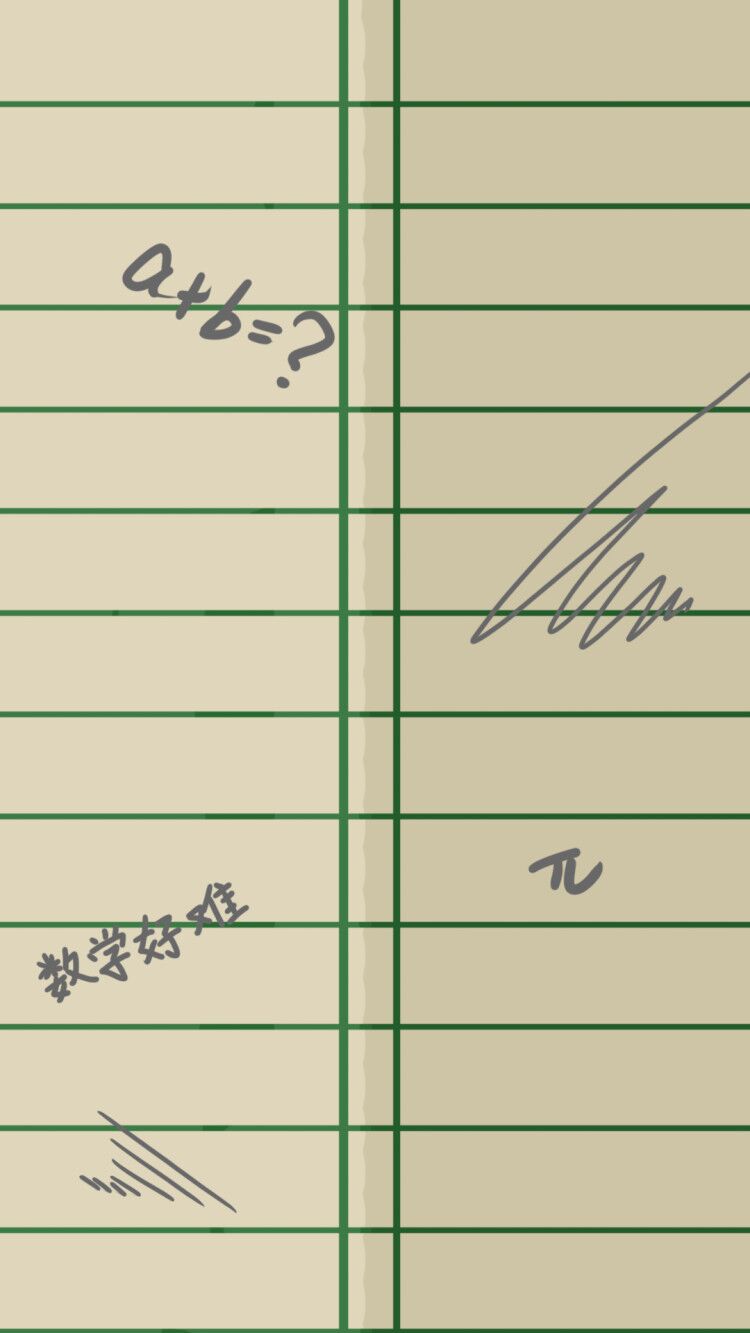 a+b=?
π
数学好难